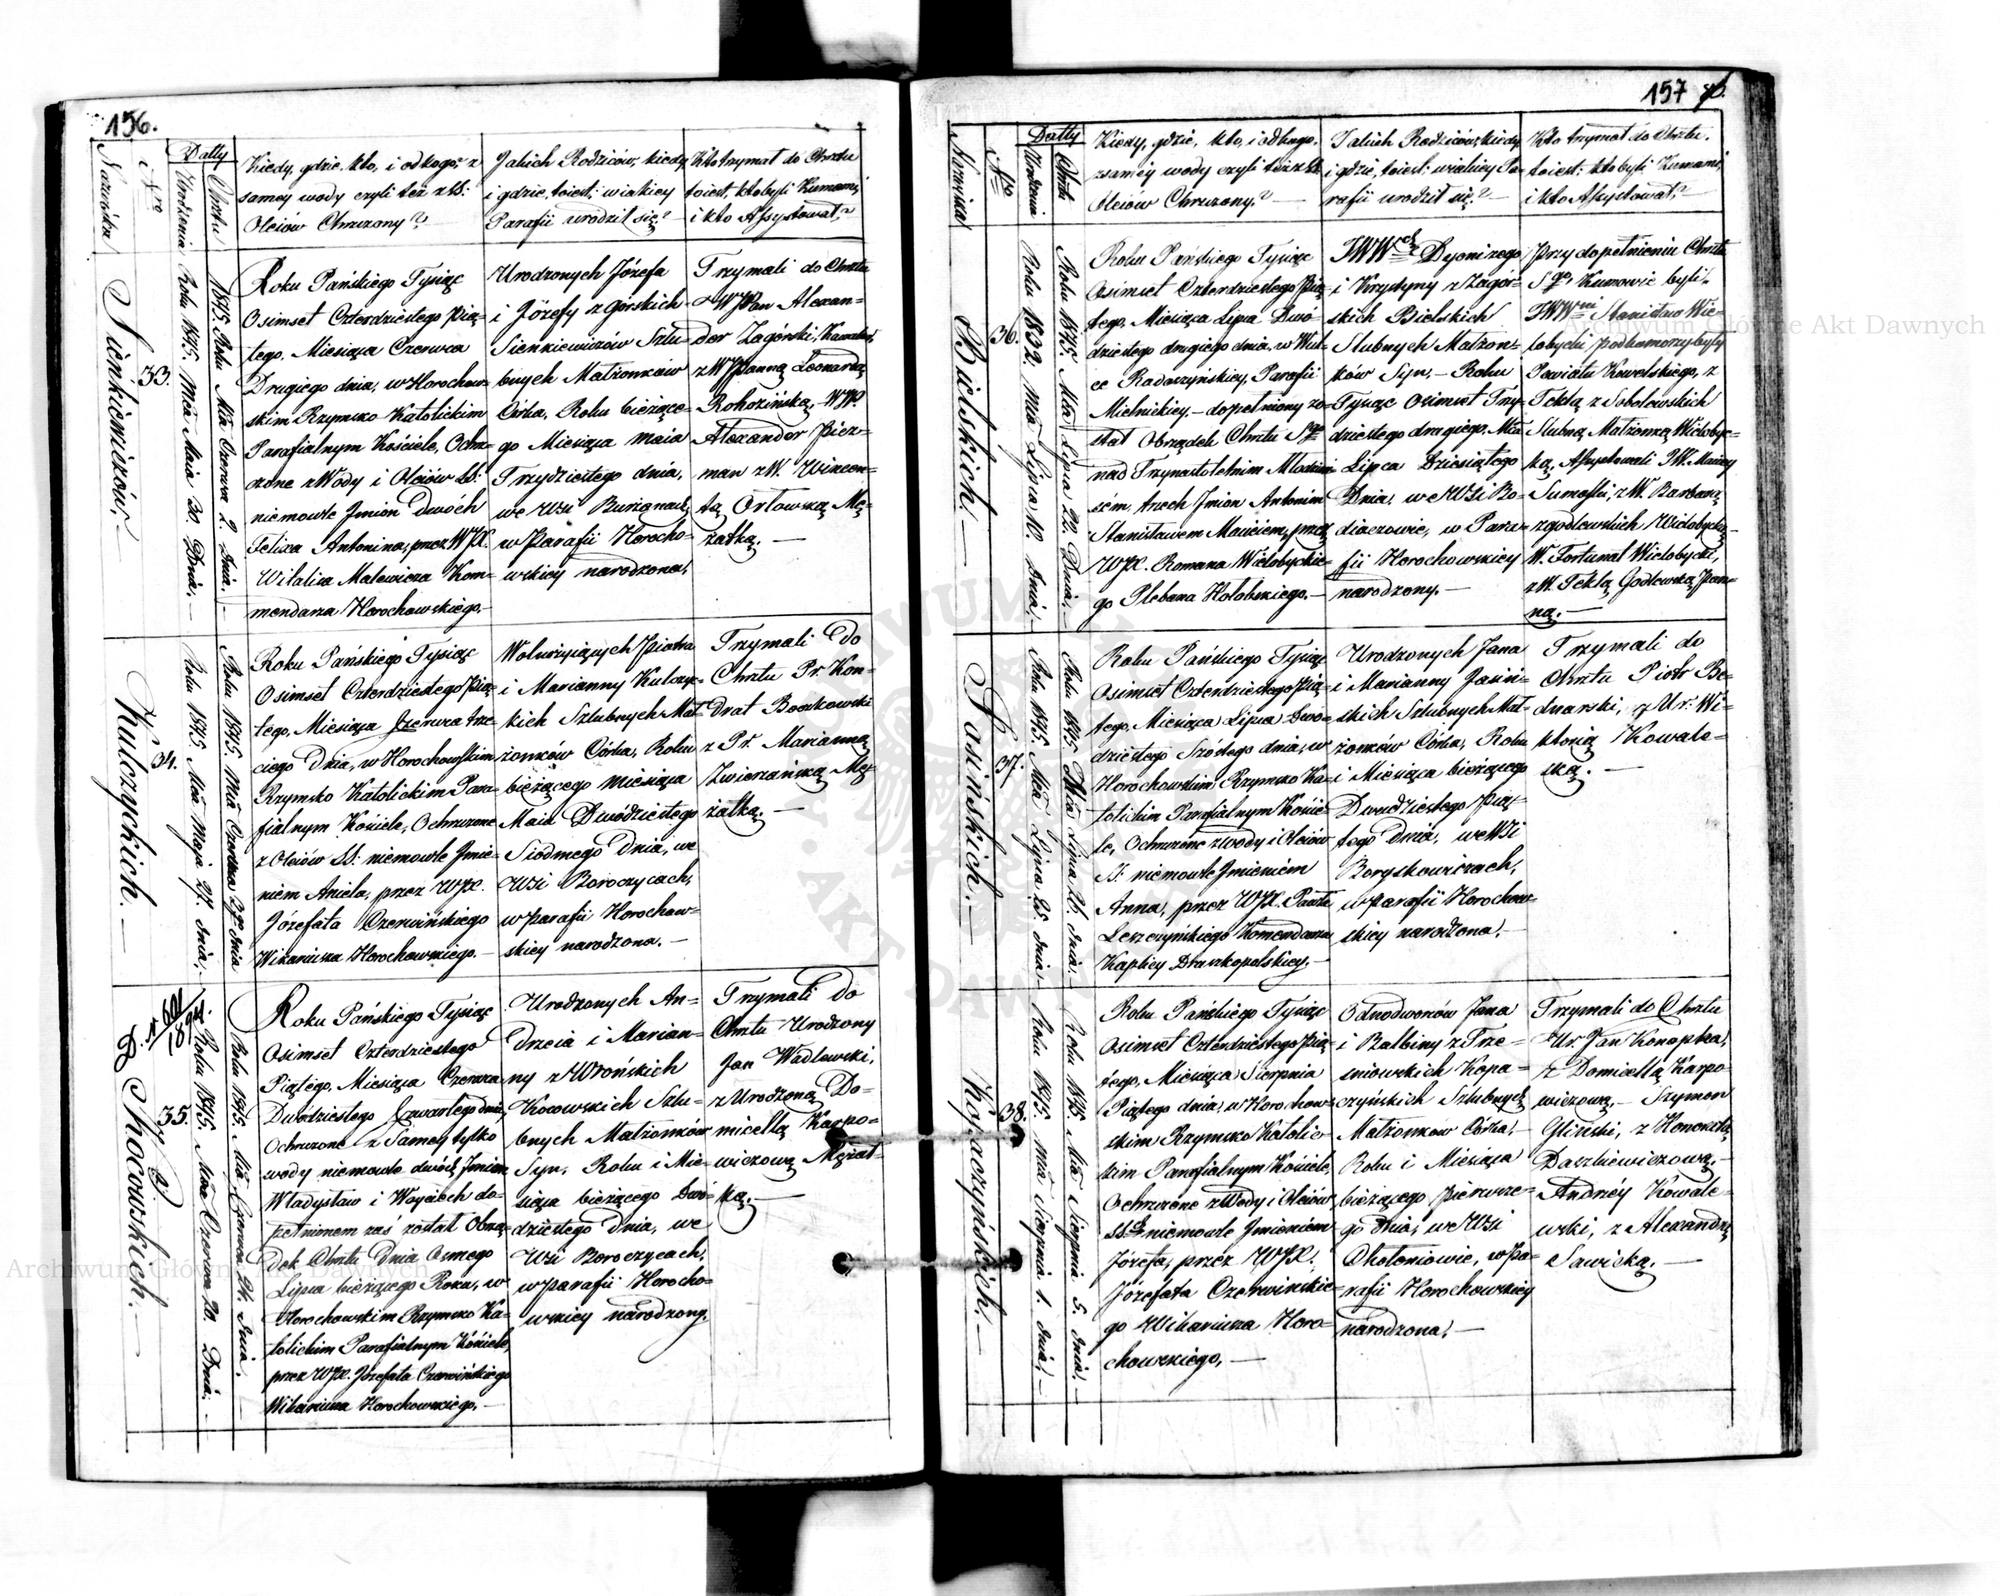 156.
Nazwiska
Nro
Datty
Urodzenia
Chrztu
Kiedy, gdzie, kto, i od kogo, z
samey wody czyli też z SS:
Oleiów Chrzczony?
Jakich Rodziców, kiedy
i gdzie, toiest: w iakiey
Parafii urodził się?
Kto trzymał do Chrztu
toiest, kto byli Kumami,
i kto Assystował?
Sienkiewiczów.
33.
Roku 1845. Mca Maia 30. Dnia.
1845. Roku Mca Czerwca 2. Dnia.
Roku Pańskiego Tysiąc
Osimset Czterdziestego pią-
tego, Miesiąca Czerwca
Drugiego dnia, w Horochow-
skim Rzymsko Katolickim
Parafialnym Kościele, Ochrz-
czone z Wody i Oleiów SS:
niemowle Jmion Dwóch
Felixa Antonina, przez WJX.
Witalisa Malewicza Kom-
mendarza Horochowskiego.
Urodzonych Józefa
i Józefy z Górskich
Sienkiewiczów Szlu-
bnych Małżonków
Córka, Roku bieżące-
go Miesiąca Maia
Trzydziestego dnia,
we Wsi
w Parafii Horocho-
wskiey narodzona.
Trzymali do Chrztu
WJPan Alexan-
der Zagórski,
z WJPanną Leonardą
Rohozińską, WJP.
Alexander Picz-
man z W. Wincen-
tą Orłowską Mę-
żatką.
Kulczyckich.
34.
Roku 1845. Mca Maja 27. dnia.
Roku 1845. Mca Czerwca dnia
Roku Pańskiego Tysiąc
Osimset Czterdziestego pią-
tego, Miesiąca Czerwca trze-
ciego Dnia, w Horochowskim
Rzymsko Katolickim Para-
fialnym Kościele, Ochrzczone
z Oleiów SS: niemowle Jmie-
niem Aniela, przez WJX.
Józefata Czerwińskiego
Wikariusza Horochowskiego.
Wolnożyiących Piotra
i Marianny Kulczyc-
kich Szlubnych Mał-
żonków Córka, Roku
bieżącego Miesiąca
Maia Dwódziestego
Siódmego Dnia, we
Wsi Boroczycach,
w Parafii Horochow-
skiey narodzona.
Trzymali do
Chrztu Pr. Kon-
drat Boczkowski
z Pr. Marianną
Zwierzańską Mę-
żatką.
D. N 60/1894.
Kocowskich.
35.
Roku 1845. Mca Czerwca 20. Dnia.
Roku 1845. Mca Czerwca 24. Dnia.
Roku Pańskiego Tysiąc
Osimset Czterdziestego
Piątego, Miesiąca Czerwca
Dwudziestego Czwartego dnia,
Ochrzczone z Samey tylko
wody niemowle dwóch Jmion
Władysław i Woyciech do-
pełnionem zaś został Obrzą-
dek Chrztu Dnia Osmego
Lipca bieżącego Roku, w
Horochowskim Rzymsko Ka-
tolickim Parafialnym Kościele,
przez WJX. Józefata Czerwińskiego
Wikariusza Horochowskiego.
Urodzonych An-
drzeia i Marian-
ny z Wrońskich
Kocowskich Szlu-
bnych Małżonków
Syn, Roku i Mie-
siąca bieżącego Dwó-
dziestego Dnia, we
Wsi Boroczycach,
w Parafii Horocho-
wskiey narodzony.
Trzymali do
Chrztu Urodzony
Jan Wadlewski,
z Urodzoną Do-
micellą Karpo-
wiczową Mężat-
ką.
157
Nazwiska
Nro
Datty
Urodzenia
Chrztu
Kiedy, gdzie, kto, i od kogo,
z samey wody czyli też z SS.
Oleiów Chrzczony?
Jakich Rodziców, kiedy
i gdzie, toiest: w iakiey Pa-
rafii urodził się?
Kto trzymał do Chrztu.
toiest: kto byli Kumami,
i kto Assystował?
Bielskich.
36.
Roku 1832. Mca Lipca 10. dnia.
Roku 1845. Mca Lipca 22. Dnia.
Roku Pańskiego Tysiąc
Osimset Czterdziestego Pią-
tego, Miesiąca Lipca Dwó-
dziestego drugiego dnia, w
ce Radoszyńskiey, Parafii
Mielnickiey, dopełniony zo-
stał Obrządek Chrztu S°
nad Trzynastoletnim Młodzień-
cem, trzech Jmion Antonim
Stanisławem przez
WJX. Romana Wielobyckie-
go Plebana Hołobskiego.
JWW Dyonizego
i Krystyny z Zagór-
skich Bielskich
Slubnych Małżon-
ków Syn, Roku
Tysiąc Osimset Trzy-
dziestego drugiego, Mca
Lipca Dziesiątego
Dnia, we Wsi Bo-
diaczowie, w Para-
fii Horochowskiey
narodzony.
Przy dopełnieniu Chrztu
S° Kumowie byli:
JWW Stanisław Wie-
lobycki podkomorzy były
Powiatu Kowelskiego, z
Teklą z Sobolewskich
Slubną Małżonką Wielobyc-
ką, Assystowali JW.
z W. Barbarą
z Godlewskich Wielobycką,
W. Fortunat Wielobycki,
z W. Teklą Godlewską Pan-
ną.
Jasińskich.
37.
Roku 1845. Mca Lipca 25. dnia.
Roku 1845. Mca Lipca 26. dnia.
Roku Pańskiego Tysiąc
Osimset Czterdziestego Pią-
tego, Miesiąca Lipca Dwó-
dziestego Szóstego dnia, w
Horochowskim Rzymsko Ka-
tolickim Parafialnym Koście-
le, Ochrzczone z wody i Oleiów
S: niemowle Jmieniem
Anna, przez WJX. Pawła
Leszczyńskiego Komendarza
Kaplicy Druszkopolskiey.
Urodzonych Jana
i Marianny Jasiń-
skich Szlubnych Mał-
żonków Córka, Roku
i Miesiąca bieżącego
Dwudziestego Pią-
tego Dnia, we Wsi
Boryskowiczach,
w Parafii Horochow-
skiey narodzona.
Trzymali do
Chrztu Piotr Be-
dnarski, z Ur: Wi-
ktorią Kowale-
ską.
Kopaczyńskich.
38.
Roku 1845. Mca Sierpnia 1. dnia.
Roku 1845. Mca Sierpnia 5. dnia.
Roku Pańskiego Tysiąc
Osimset Czterdziestego Pią-
tego, Miesiąca Sierpnia
Piątego dnia, w Horochow-
skim Rzymsko Katolic-
kim Parafialnym Kościele,
Ochrzczone z Wody i Oleiów
SS. niemowle Jmieniem
Józefa, przez WJX.
Józefata Czerwińskie-
go Wikariusza Horo-
chowskiego.
Odnodworców Jana
i Balbiny z Trze-
śniowskich Kopa-
czyńskich Szlubnych
Małżonków Córka,
Roku i Miesiąca
bieżącego Pierwsze-
go Dnia, we Wsi
Chołoniowie, w Pa-
rafii Horochowskiey
narodzona.
Trzymali do Chrztu
Ur. Jan Konopka,
z Domicellą Karpo
wiczową. Szymon
Gliński, z Honoratą
Daszkiewiczową.
Andrzéy Kowale-
wski, z Alexandrą
Sawicką.
Archiwum Główne Akt Dawnych
Archiwum Główne Akt Dawnych